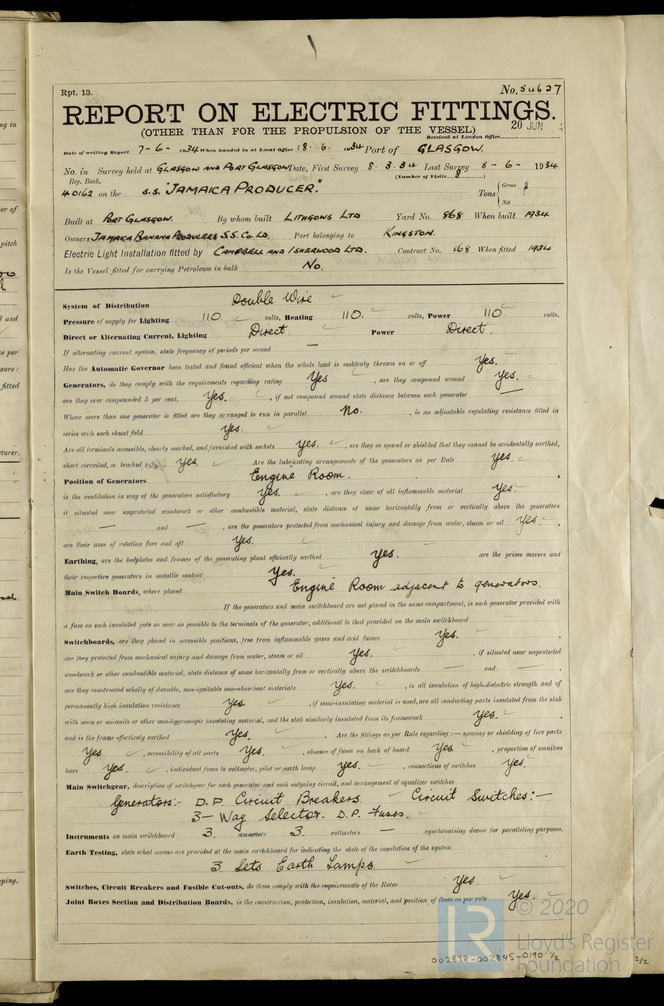 Rpt. 13.
No. 54627
REPORT ON ELECTRIC FITTINGS.
(OTHER THAN FOR THE PROPULSION OF THE VESSEL)
Received at London Office 20 JUN
Date of writing Report 7-6-1934 When handed in at Local Office 18.6.1934 Port of GLASGOW.
No. in Survey held at GLASGOW AND PORT GLASGOW Date, First Survey 8.3.34 Last Survey 8-6-1934
Reg. Book. (Number of Visits 8)
40162 on the S.S. "JAMAICA PRODUCER." Tons { Gross
Net
Built at PORT GLASGOW. By whom built LITHGOWS LTD Yard No. 868 When built 1934
Owners JAMAICA BANANA PRODUCERS S.S. CO. LD. Port belonging to KINGSTON.
Electric Light Installation fitted by CAMPBELL AND ISHERWOOD LTD. Contract No. 168 When fitted 1934
Is the Vessel fitted for carrying Petroleum in bulk No.
System of Distribution Double Wire
Pressure of supply for Lighting 110. volts, Heating 110. volts, Power 110. volts.
Direct or Alternating Current, Lighting Direct. Power Direct.
If alternating current system, state frequency of periods per second —
Has the Automatic Governor been tested and found efficient when the whole load is suddenly thrown on or off Yes.
Generators, do they comply with the requirements regarding rating Yes , are they compound wound Yes.
are they over compounded 5 per cent. Yes. , if not compound wound state distance between each generator —
Where more than one generator is fitted are they arranged to run in parallel No. , is an adjustable regulating resistance fitted in
series with each shunt field Yes.
Are all terminals accessible, clearly marked, and furnished with sockets Yes. , are they so spaced or shielded that they cannot be accidentally earthed,
short circuited, or touched Yes. Are the lubricating arrangements of the generators as per Rule Yes.
Position of Generators Engine Room.
is the ventilation in way of the generators satisfactory Yes. , are they clear of all inflammable material Yes.
if situated near unprotected woodwork or other combustible material, state distance of same horizontally from or vertically above the generators
— and — , are the generators protected from mechanical injury and damage from water, steam or oil Yes.
are their axes of rotation fore and aft Yes.
Earthing, are the bedplates and frames of the generating plant efficiently earthed Yes. are the prime movers and
their respective generators in metallic contact Yes.
Main Switch Boards, where placed Engine Room adjacent to generators.
If the generators and main switchboard are not placed in the same compartment, is each generator provided with
a fuse on each insulated pole as near as possible to the terminals of the generator, additional to that provided on the main switchboard
Switchboards, are they placed in accessible positions, free from inflammable gases and acid fumes Yes.
are they protected from mechanical injury and damage from water, steam or oil Yes. , if situated near unprotected
woodwork or other combustible material, state distance of same horizontally from or vertically above the switchboards — and —
are they constructed wholly of durable, non-ignitable non-absorbent materials Yes. , is all insulation of high dielectric strength and of
permanently high insulation resistance Yes. , if semi-insulating material is used, are all conducting parts insulated from the slab
with mica or micanite or other non-hygroscopic insulating material, and the slab similarly insulated from its framework Yes.
and is the frame effectively earthed Yes. Are the fittings as per Rule regarding:— spacing or shielding of live parts
Yes. , accessibility of all parts Yes. , absence of fuses on back of board Yes , proportion of omnibus
bars Yes. , individual fuses to voltmeter, pilot or earth lamp Yes. , connections of switches Yes.
Main Switchgear, description of switchgear for each generator and each outgoing circuit, and arrangement of equalizer switches
Generators:- D.P. Circuit Breakers. Circuit Switches:-
3-Way Selector. D.P. Fuses.
Instruments on main switchboard 3 ammeters 3 voltmeters — synchronising device for paralleling purposes.
Earth Testing, state what means are provided at the main switchboard for indicating the state of the insulation of the system
3 Sets Earth Lamps.
Switches, Circuit Breakers and Fusible Cut-outs, do these comply with the requirements of the Rules Yes.
Joint Boxes Section and Distribution Boards, is the construction, protection, insulation, material, and position of these as per rule Yes.
© 2020
Lloyd's Register
Foundation
002838-002845-0190 1/2